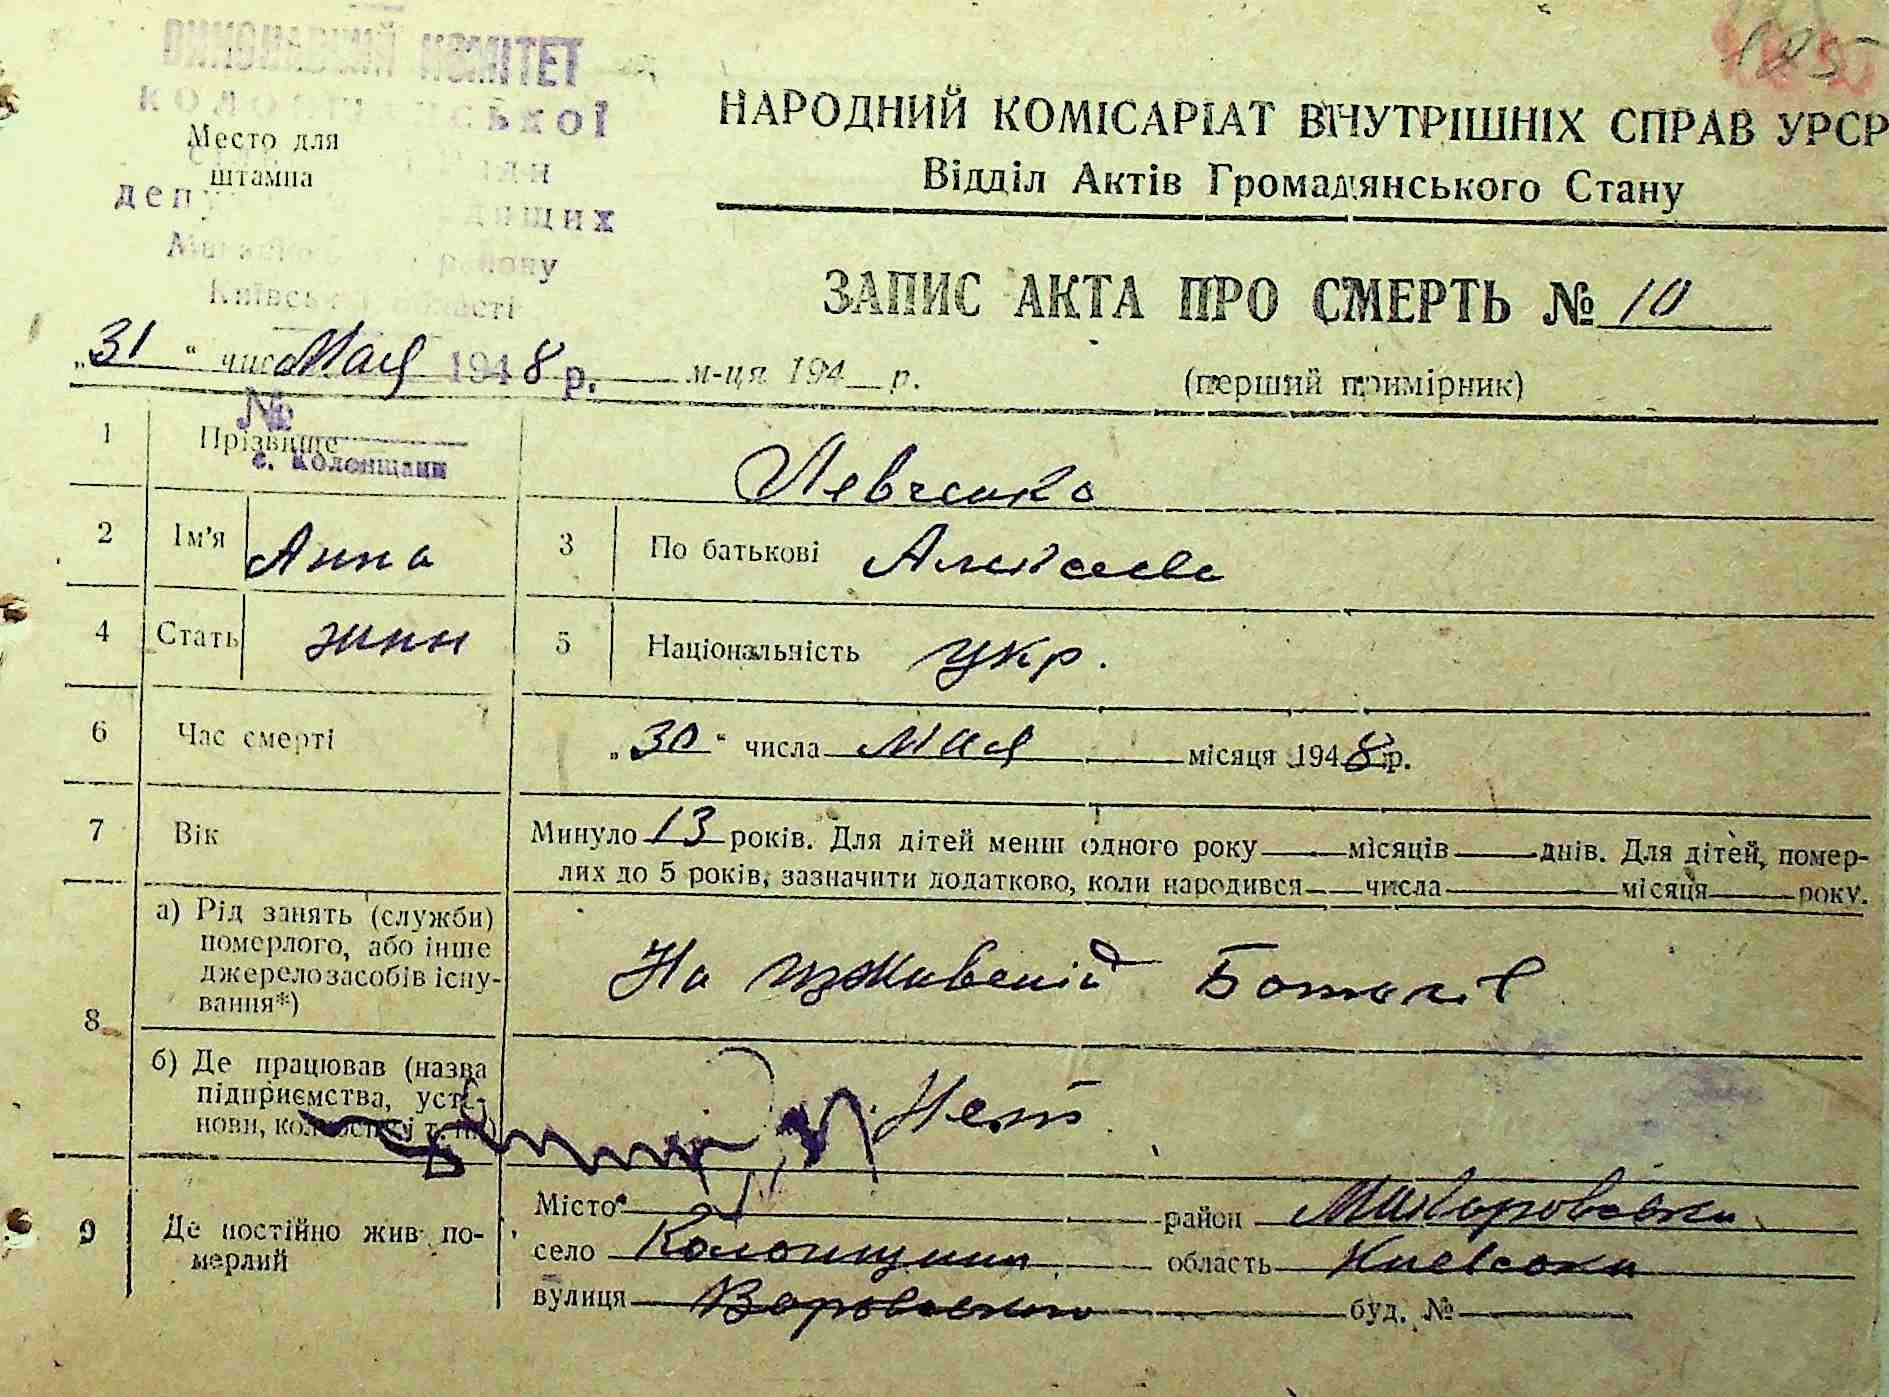 ВИКОНАВЧИЙ КОМІТЕТ
185
Место для
штампа
НАРОДНИЙ КОМІСАРІАТ ВНУТРІШНІХ СПРАВ УРСР
Відділ Актів Громадянського Стану
району
Київської області
ЗАПИС АКТА ПРО СМЕРТЬ № 10
„31“ числ Мая 1948 р. м-ця 194 р.
(перший примірник)
№
1 Прізвище Левченко
с. Колонщини
2 Ім'я Анна 3 По батькові Алексеева
4 Стать жин 5 Національність укр.
6 Час смерті „30“ числа Мая місяця 1948 р.
7 Вік Минуло 13 років. Для дітей менш одного року місяців днів. Для дітей, помер-
лих до 5 років, зазначити додатково, коли народився числа місяця року.
8 а) Рід занять (служби)
померлого, або інше
джерело засобів існу-
вання*)
На иждивении Батьків
б) Де працював (назва
підприємства, уста-
нови, колгоспу і т. п.)
Нет
9 Де постійно жив по-
мерлий
Місто район Макаровский
село Колонщина область Киевской
вулиця буд. №